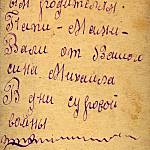 ым родителям.
Папи - Мами -
Вали от Вашого
сина Михаила
В дни суровой
войны